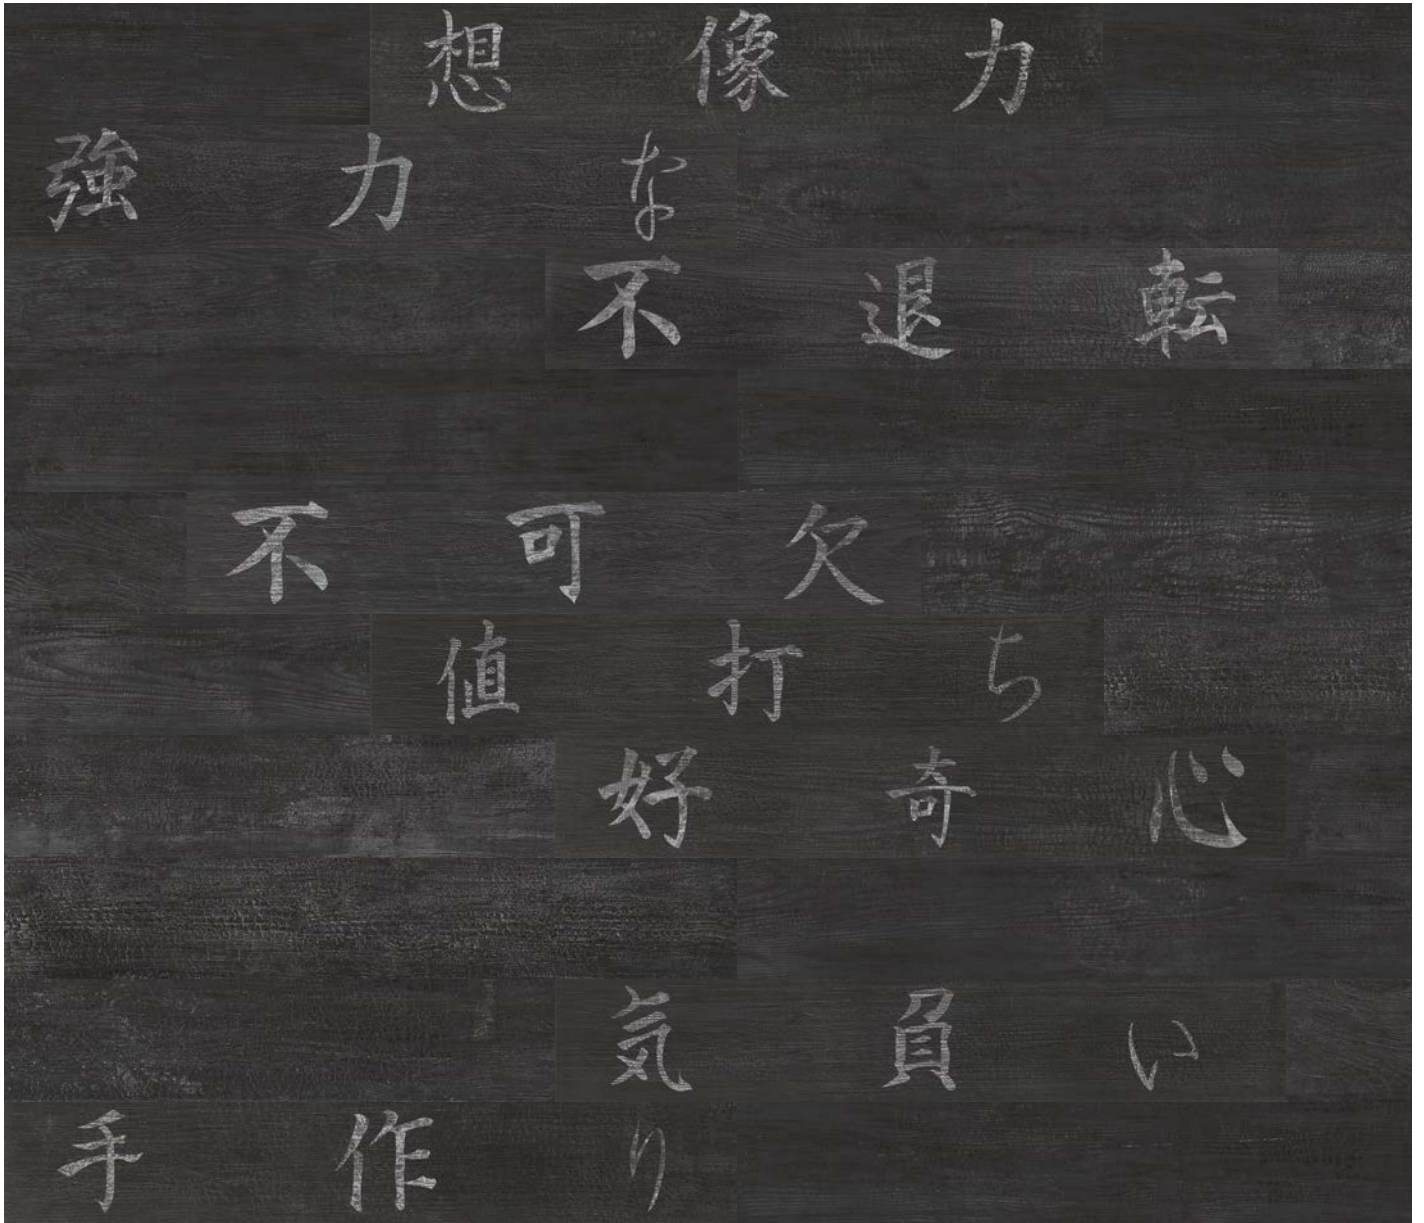 想像力
強力な
不退転
不可欠
値打ち
好奇心
気負い
手作り